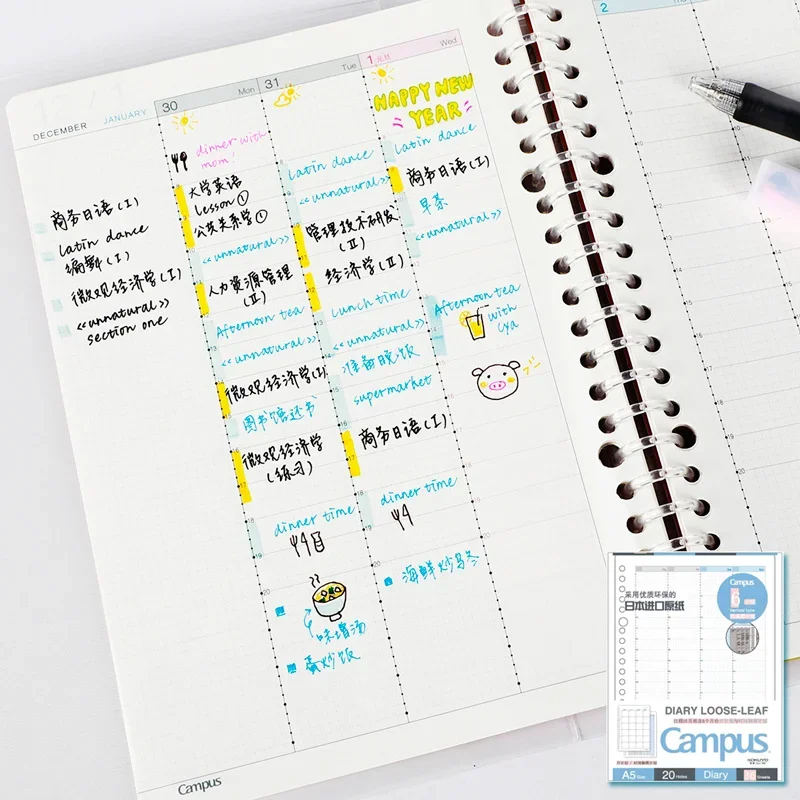 DECEMBER JANUARY
30 Mon
31 Tue
1 元旦 Wed
2
商务日语(I)
latin dance
编舞(I)
微观经济学(I)
<<unnatural>>
section one
dinner with
mom!
大学英语
lesson①
公共关系学①
<<unnatural>>
人力资源管理
(II)
Afternoon tea
<<unnatural>>
微观经济学(I)
图书馆还书
微观经济学
(练习)
dinner time
味增汤
蛋炒饭
latin dance
<<unnatural>>
管理技术研发
(II)
经济学(II)
lunch time
<<unnatural>>
准备晚饭
supermarket
商务日语(I)
dinner time
海鲜炒乌冬
HAPPY NEW
YEAR
latin dance
商务日语(I)
早茶
<<unnatural>>
Afternoon tea
with
Campus
采用优质环保的
日本进口原纸
Campus
DIARY LOOSE-LEAF
Campus
KOKUYO
A5 Size 20 Holes Diary Sheets